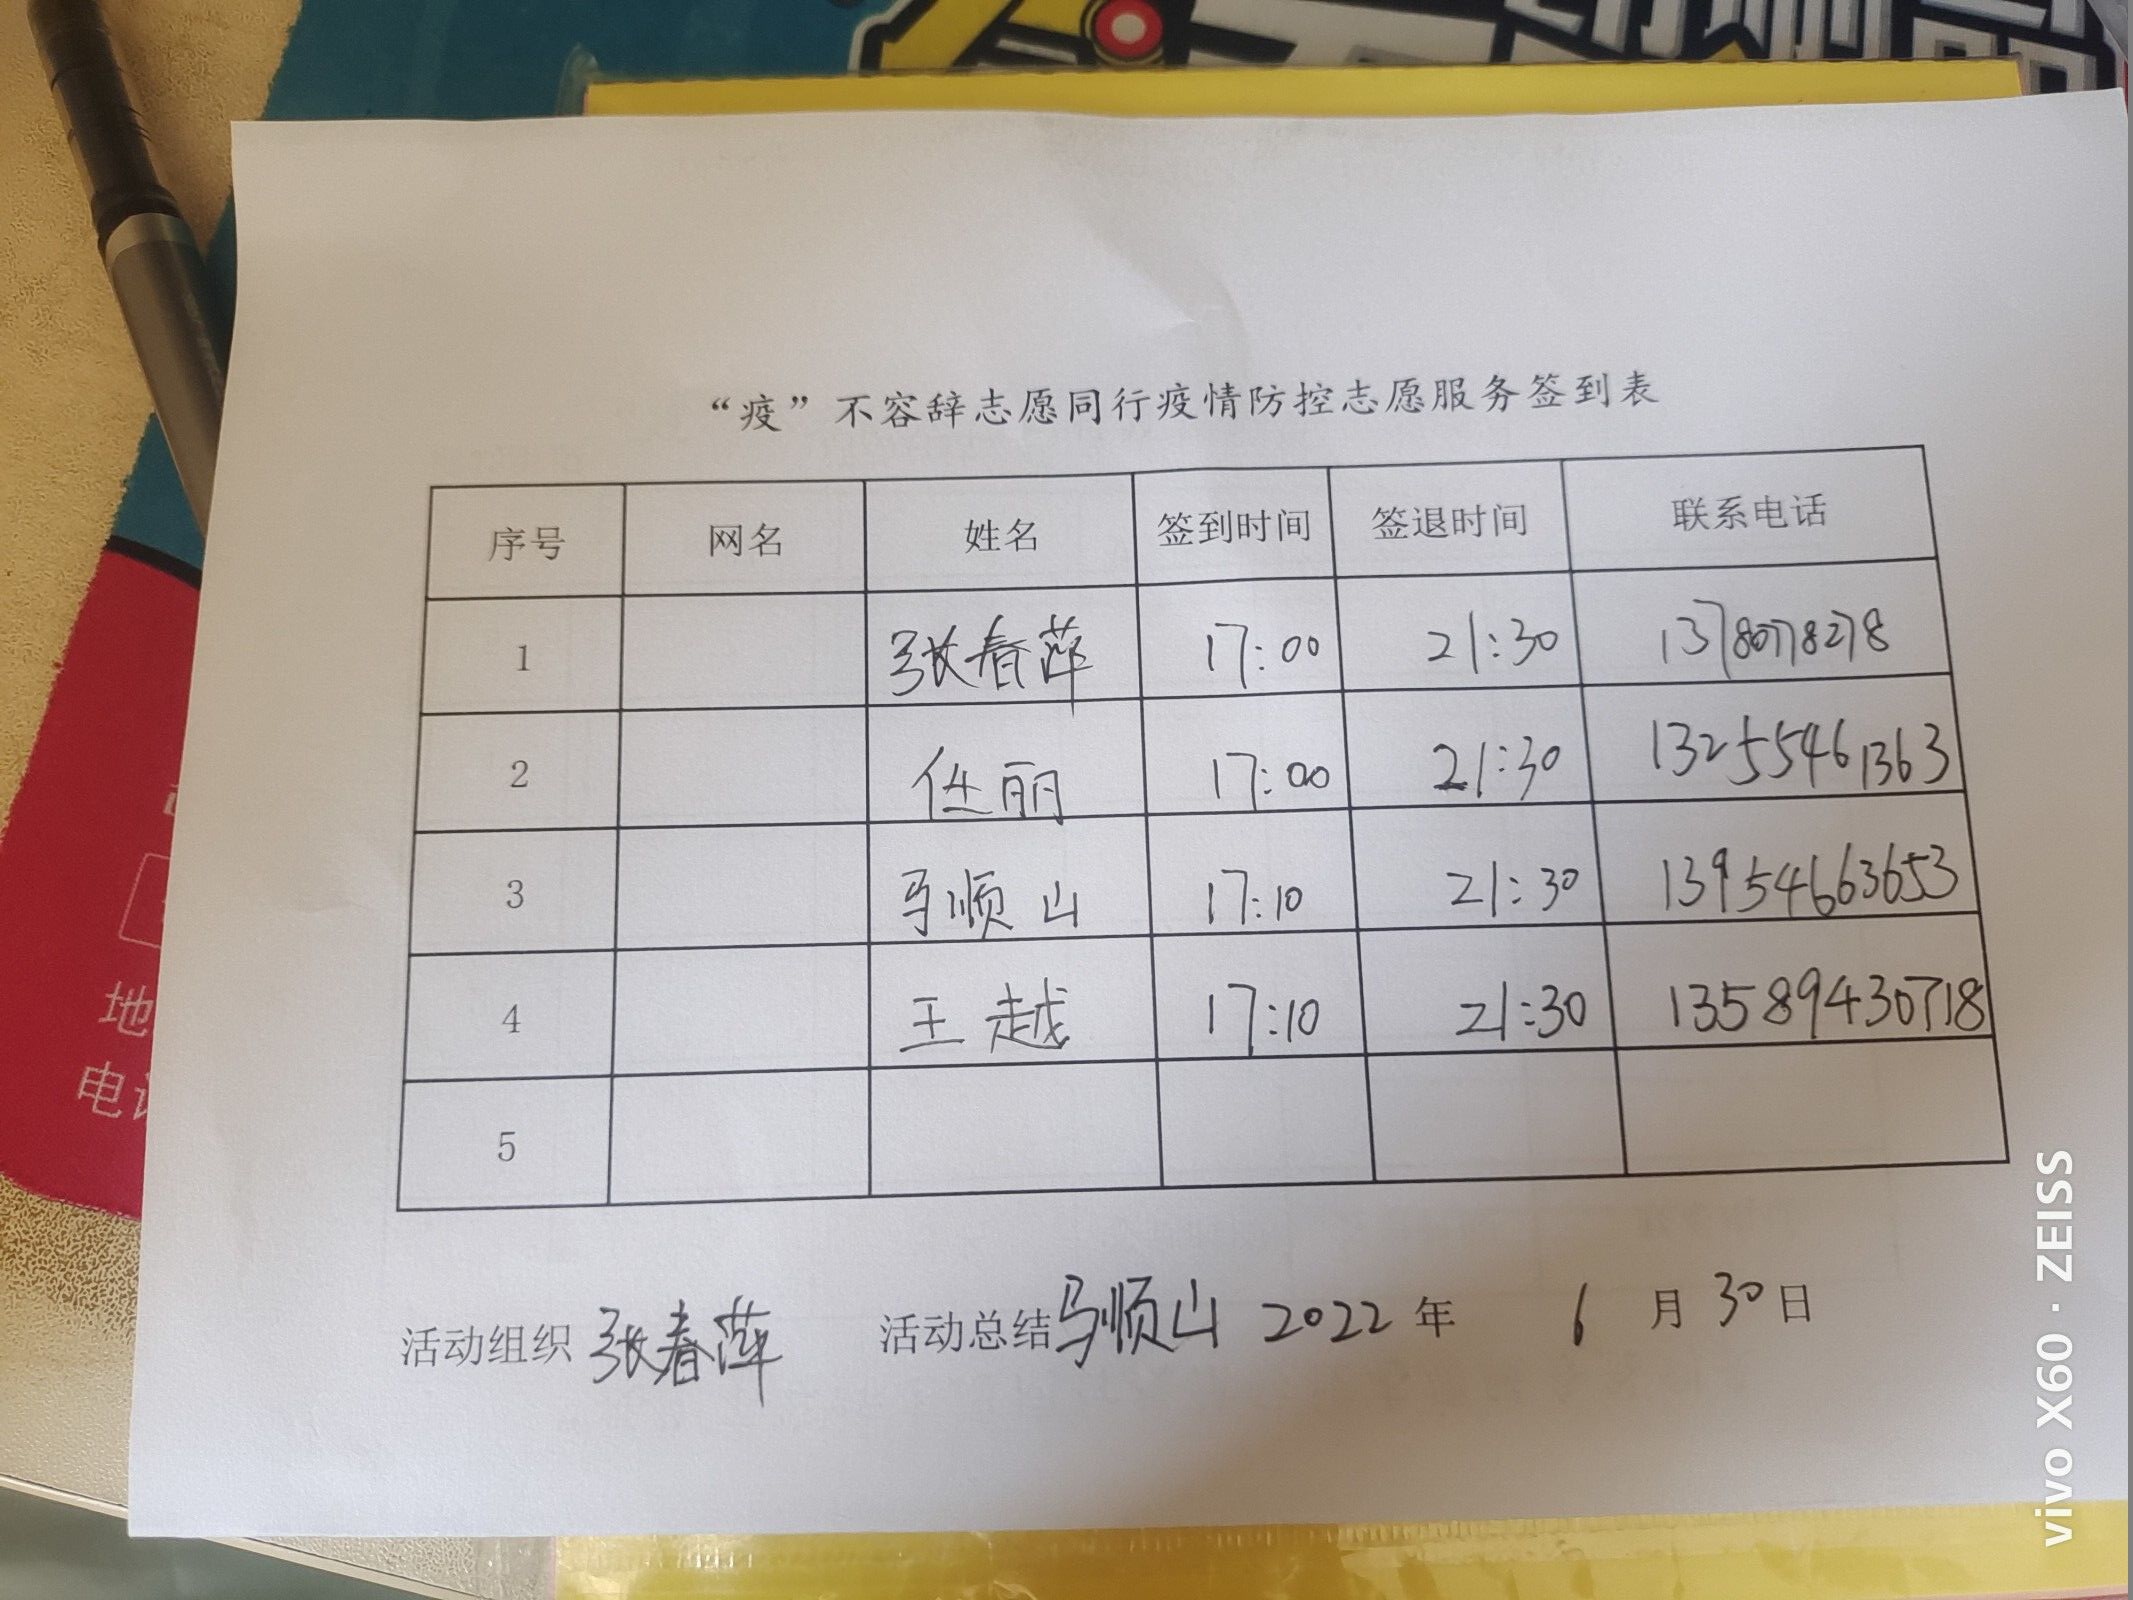 “疫”不容辞志愿同行疫情防控志愿服务签到表
序号 网名 姓名 签到时间 签退时间 联系电话
1 张春萍 17:00 21:30 13780778278
2 任丽 17:00 21:30 13255461363
3 马顺山 17:10 21:30 13954663653
4 王越 17:10 21:30 13589430718
5
活动组织 张春萍 活动总结 马顺山 2022 年 6 月 30 日
地
电
vivo X60 · ZEISS